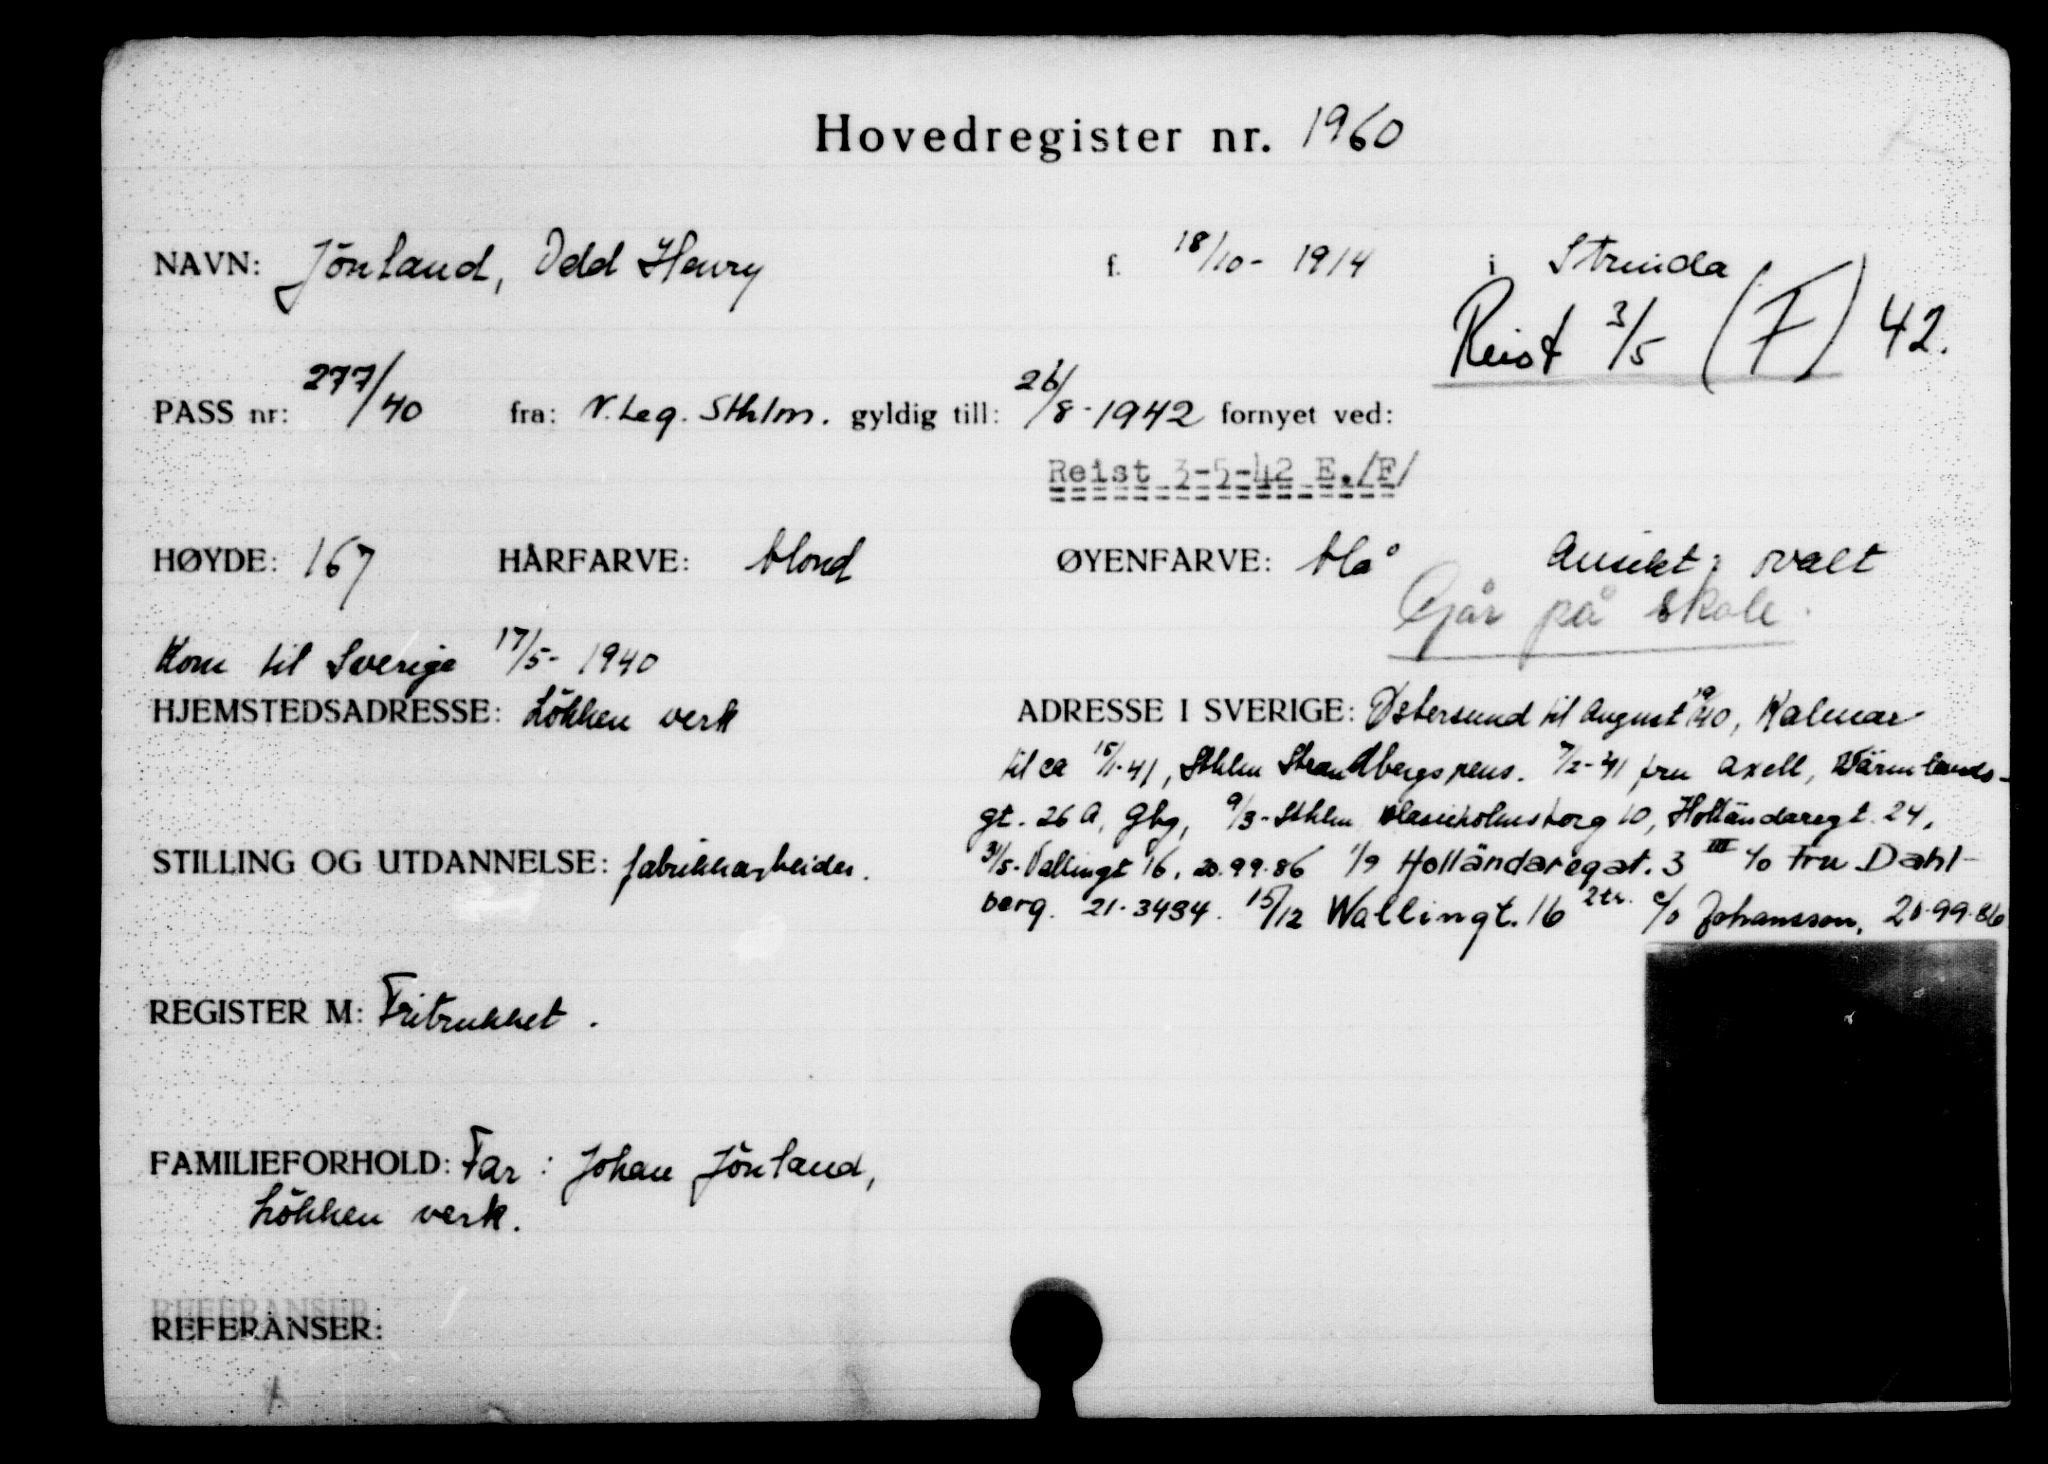 Hovedregister nr. 1960
NAVN: Jönland, Odd Henry f. 18/10- 1914 i Strinda
Reist 3/5 (F) 42.
PASS nr: 277/40 fra: N. Leg. Sthlm. gyldig till: 26/8-1942 fornyet ved:
Reist 3-5-42 E./F/
HØYDE: 167 HÅRFARVE: blond ØYENFARVE: blå Ansikt: ovalt
Går på skole.
Kom til Sverige 17/5- 1940
HJEMSTEDSADRESSE: Lökken verk ADRESSE I SVERIGE: Østersund til August 40, Kalmar
til ca 15/1-41, Sthlm Strandbergs pens. 7/2-41 fru Axell, Wärmlands-
gt. 26 A, Gbg, 9/3- Sthlm Blasieholmstorg 10, Holländaregt. 24,
STILLING OG UTDANNELSE: fabrikkarbeider. 31/5- Vallingt 16, 20.99.86 1/9 Holländaregat. 3 III c/o Fru Dahl-
berg. 21-3434. 15/12 Wallingt. 16 2tr. c/o Johansson, 20.99.86
REGISTER M: Fritrukket.
FAMILIEFORHOLD: Far: Johan Jönland,
Lökken verk.
REFERANSER
REFERANSER: